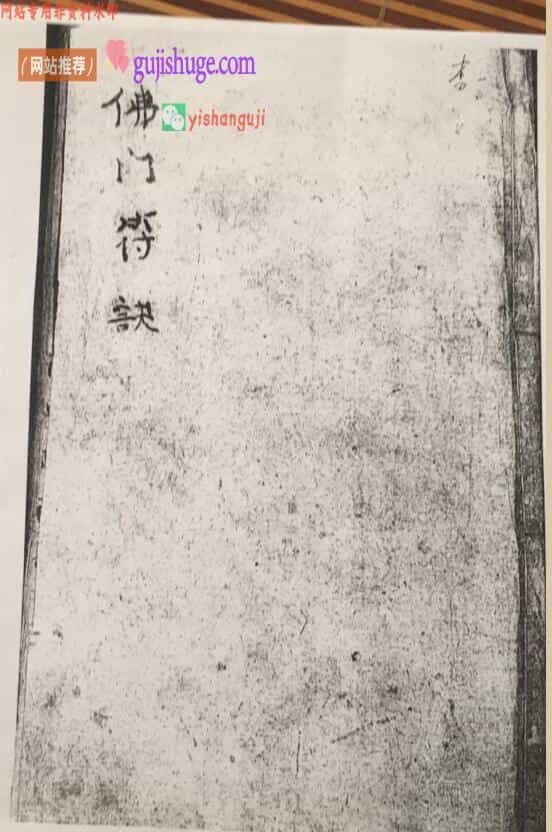 网站专用非资料水印
（网站推荐）
gujishuge.com
yishanguji
佛门符訣